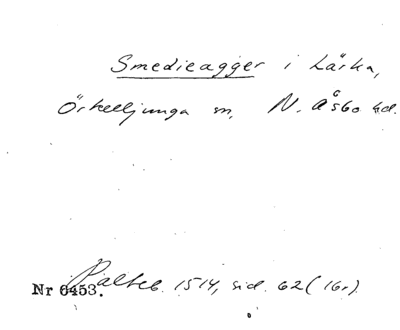 Smedieagger i Lärka,
Örkelljunga sn, N. Åsbo hd.
Nr 6453. Palteb. 1514, sid. 62 (16r).